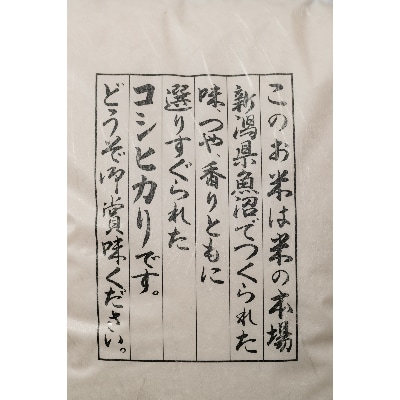 このお米は米の本場
新潟県魚沼でつくられた
味、つや、香りともに
選りすぐられた
コシヒカリです。
どうぞ御賞味ください。